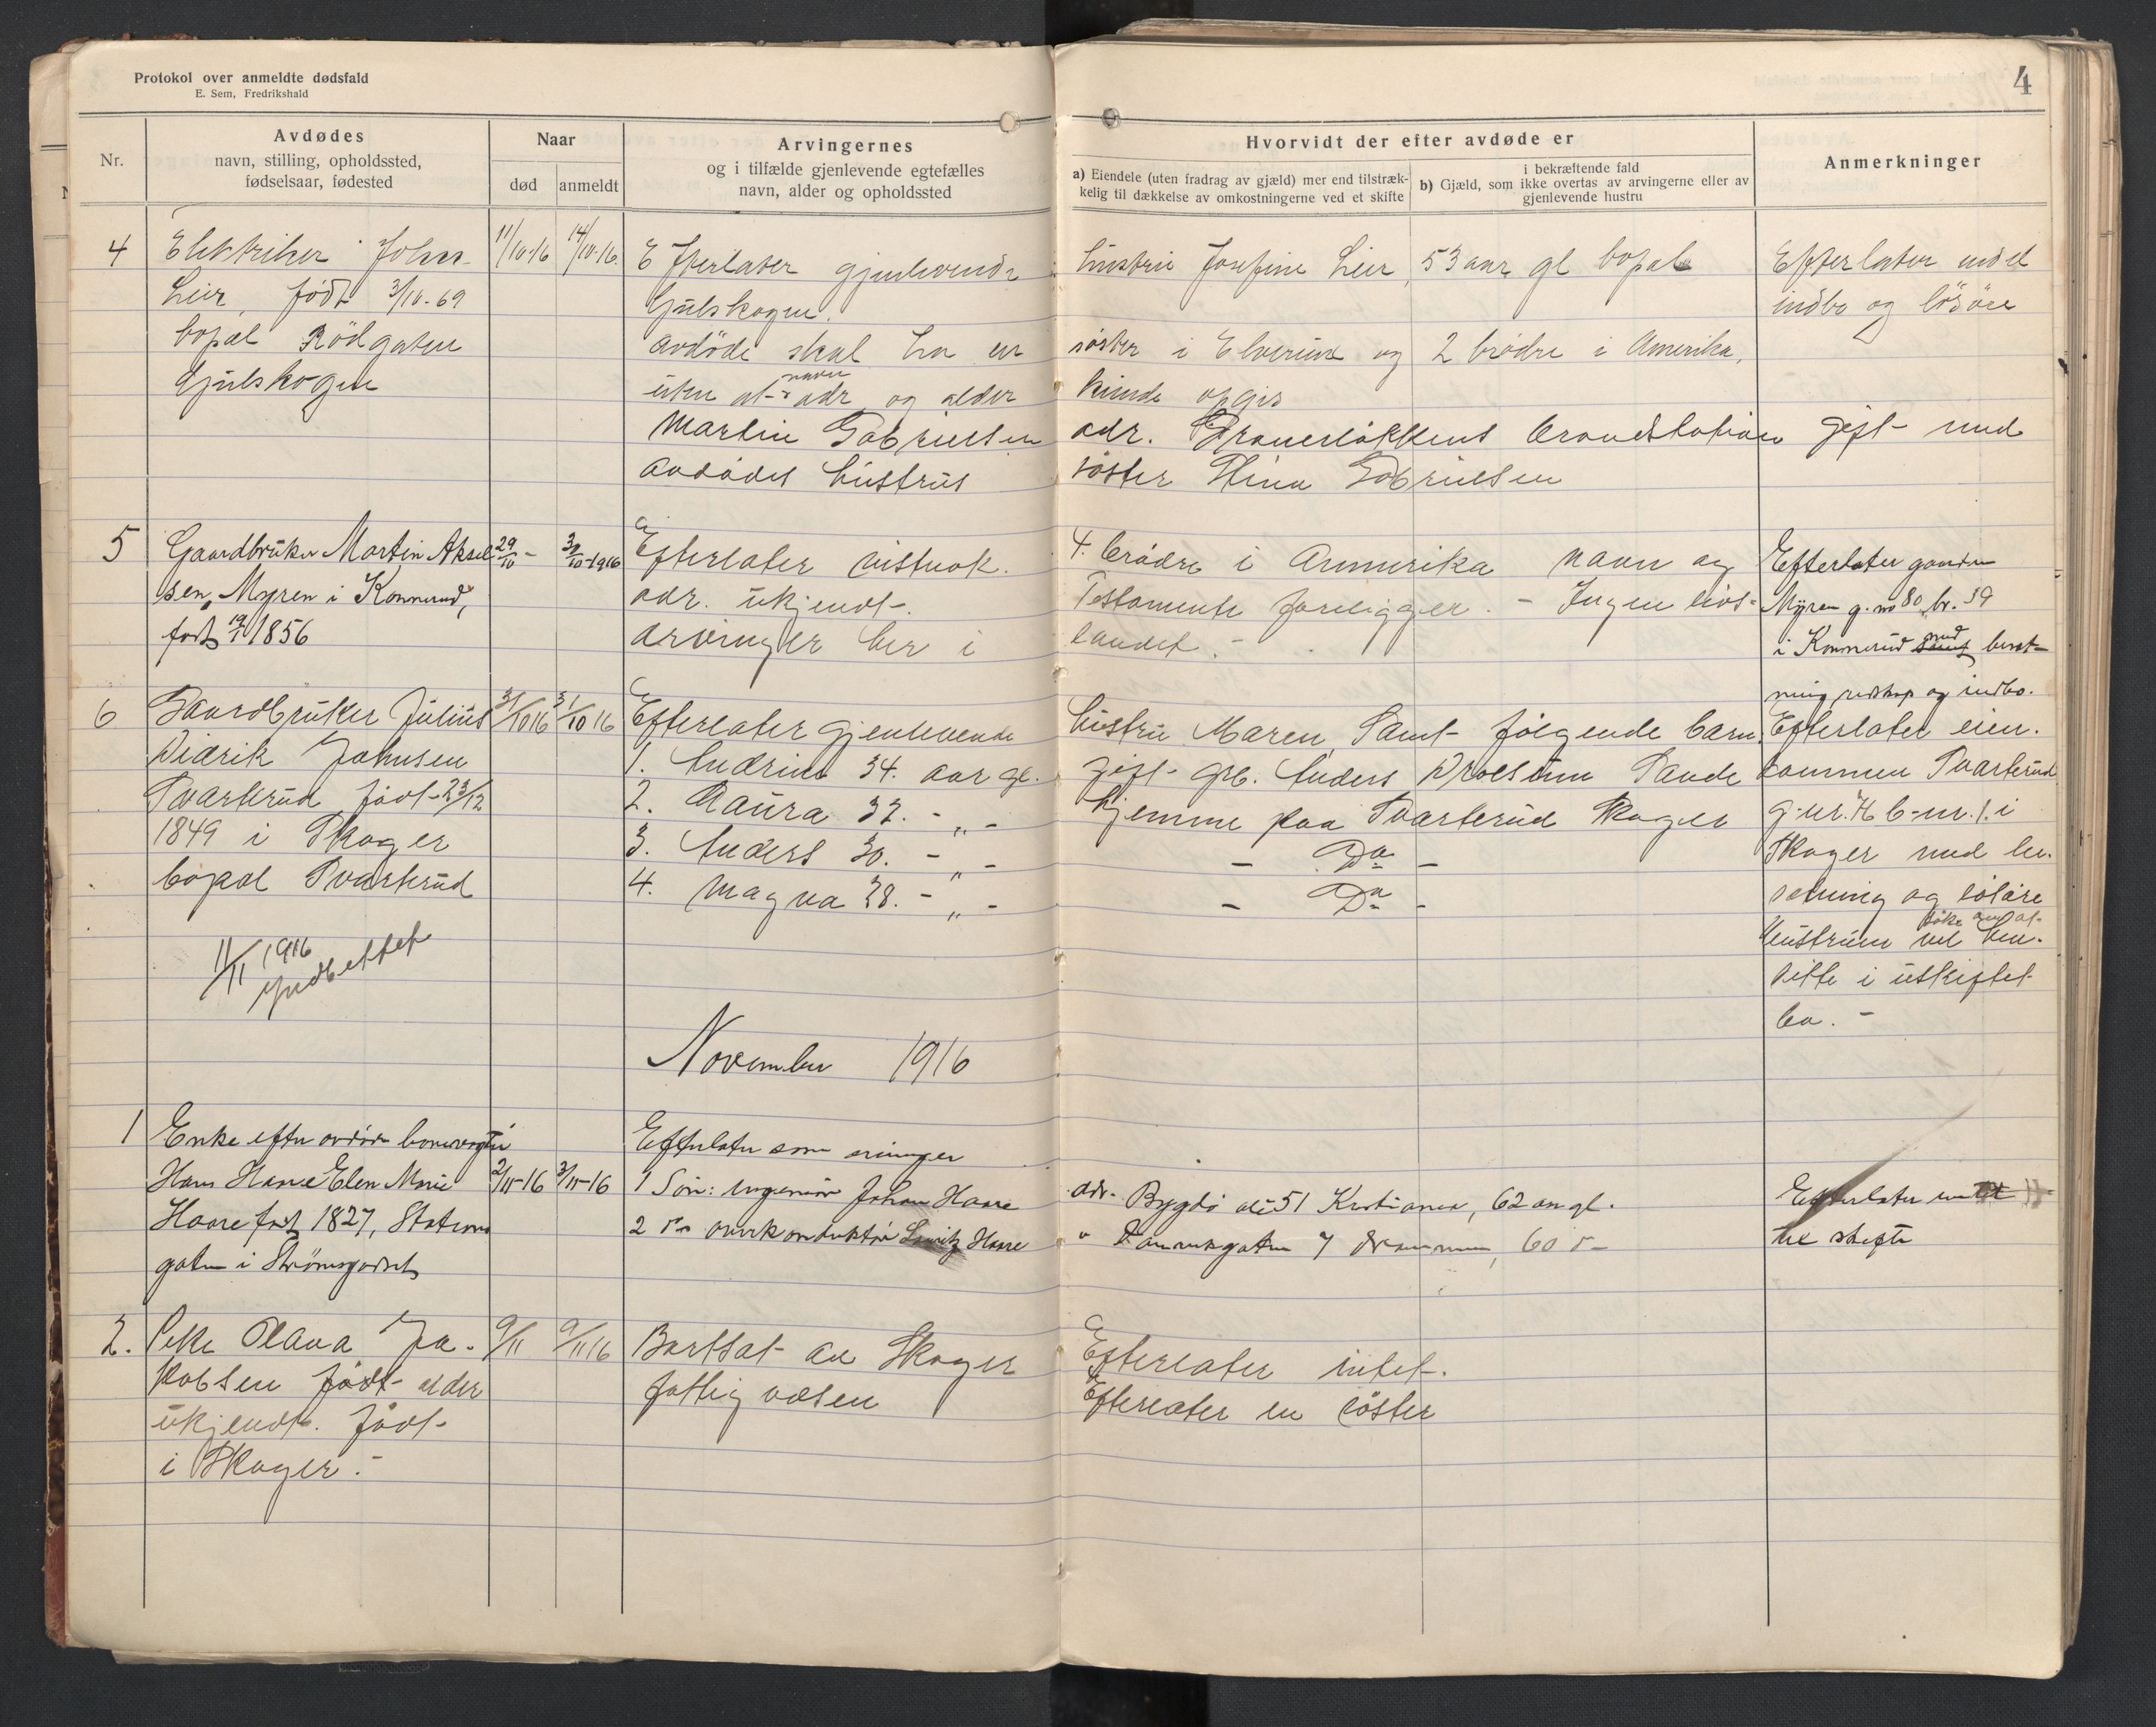 Protokol over anmeldte dødsfald
E. Sem, Fredrikshald
4
Nr.
Avdødes
navn, stilling, opholdssted,
fødselsaar, fødested
Naar
død anmeldt
Arvingernes
og i tilfælde gjenlevende egtefælles
navn, alder og opholdssted
Hvorvidt der efter avdøde er
a) Eiendele (uten fradrag av gjæld) mer end tilstræk-
kelig til dækkelse av omkostningerne ved et skifte
i bekræftende fald
b) Gjæld, som ikke overtas av arvingerne eller av
gjenlevende hustru
Anmerkninger
4 Elektriker Johan 11/10-16 14/10-16. Efterlater gjenlevende hustru Josefine Leir, 53 aar gl bopæl Efterlater endel
Leir, født 3/10-69 Gulskogen. indbo og løsöre
bopæl Rödgaten avdöde skal ha en söster i Elverum og 2 brödre i Amerika,
Gulskogen uten at navn adr og alder kunde opgis
Martin Gabrielsen adr. brandstation gift med
avdödes hustrus söster Stina Gabrielsen
5 Gaardbruker Martin Aksel 29/10 - 30/10-1916 Efterlater 4. brödre i Ammerika navn og Efterlater gaarden
sen, Myren i Konnerud, adr. ukjendt. Testamente foreligger. - Ingen livs- Myren g.no 80, br. 59
født 19/1 1856 arvinger her i landet. - i Konnerud samt med besæt-
ning redskap og indbo.
6 Gaardbruker Julius 31/10 16 31/10 16 Efterlater gjenlevende hustru Maren Samt følgende barn Efterlater eien.
Didrik Johnsen 1. Andrine 34. aar gl. gift grb. Anders Sande dommen Svarterud
Svarterud födt 23/12 2. Laura 32. - „ - hjemme paa Svarterud Skoger g-nr. b-nr. 1. i
1849 i Skoger 3. Anders 30. - „ - - Do - Skoger med be.
bopæl Svarterud 4. Magna 28. - „ - - Do - sætning og lösöre
Hustruen vil söke om at hen.
11/11 1916 Indberettet sitte i uskiftet
bo. -
November 1916
1 Enke efter avdøde banevogter Efterlater som arvinger
Hans Haare Elen Marie 2/11-16 3/11-16 1 Søn: Ingeniør Johan Haare adr. Bygdö allé 51 Kristiania, 62 aar gl. Efterlater intet
Haare født 1827, Stations 2 do overkonduktør Lauritz Haare " Danmarksgaten 7 Drammen, 60 do til skifte
gaten i Strømsgodset
2. Pike Olava Ja- 9/11 9/11 16 Bortsat av Skoger Efterlater intet.
kobsen födt alder fattigvæsen Efterlater en söster
ukjendt. födt
i Skoger. -